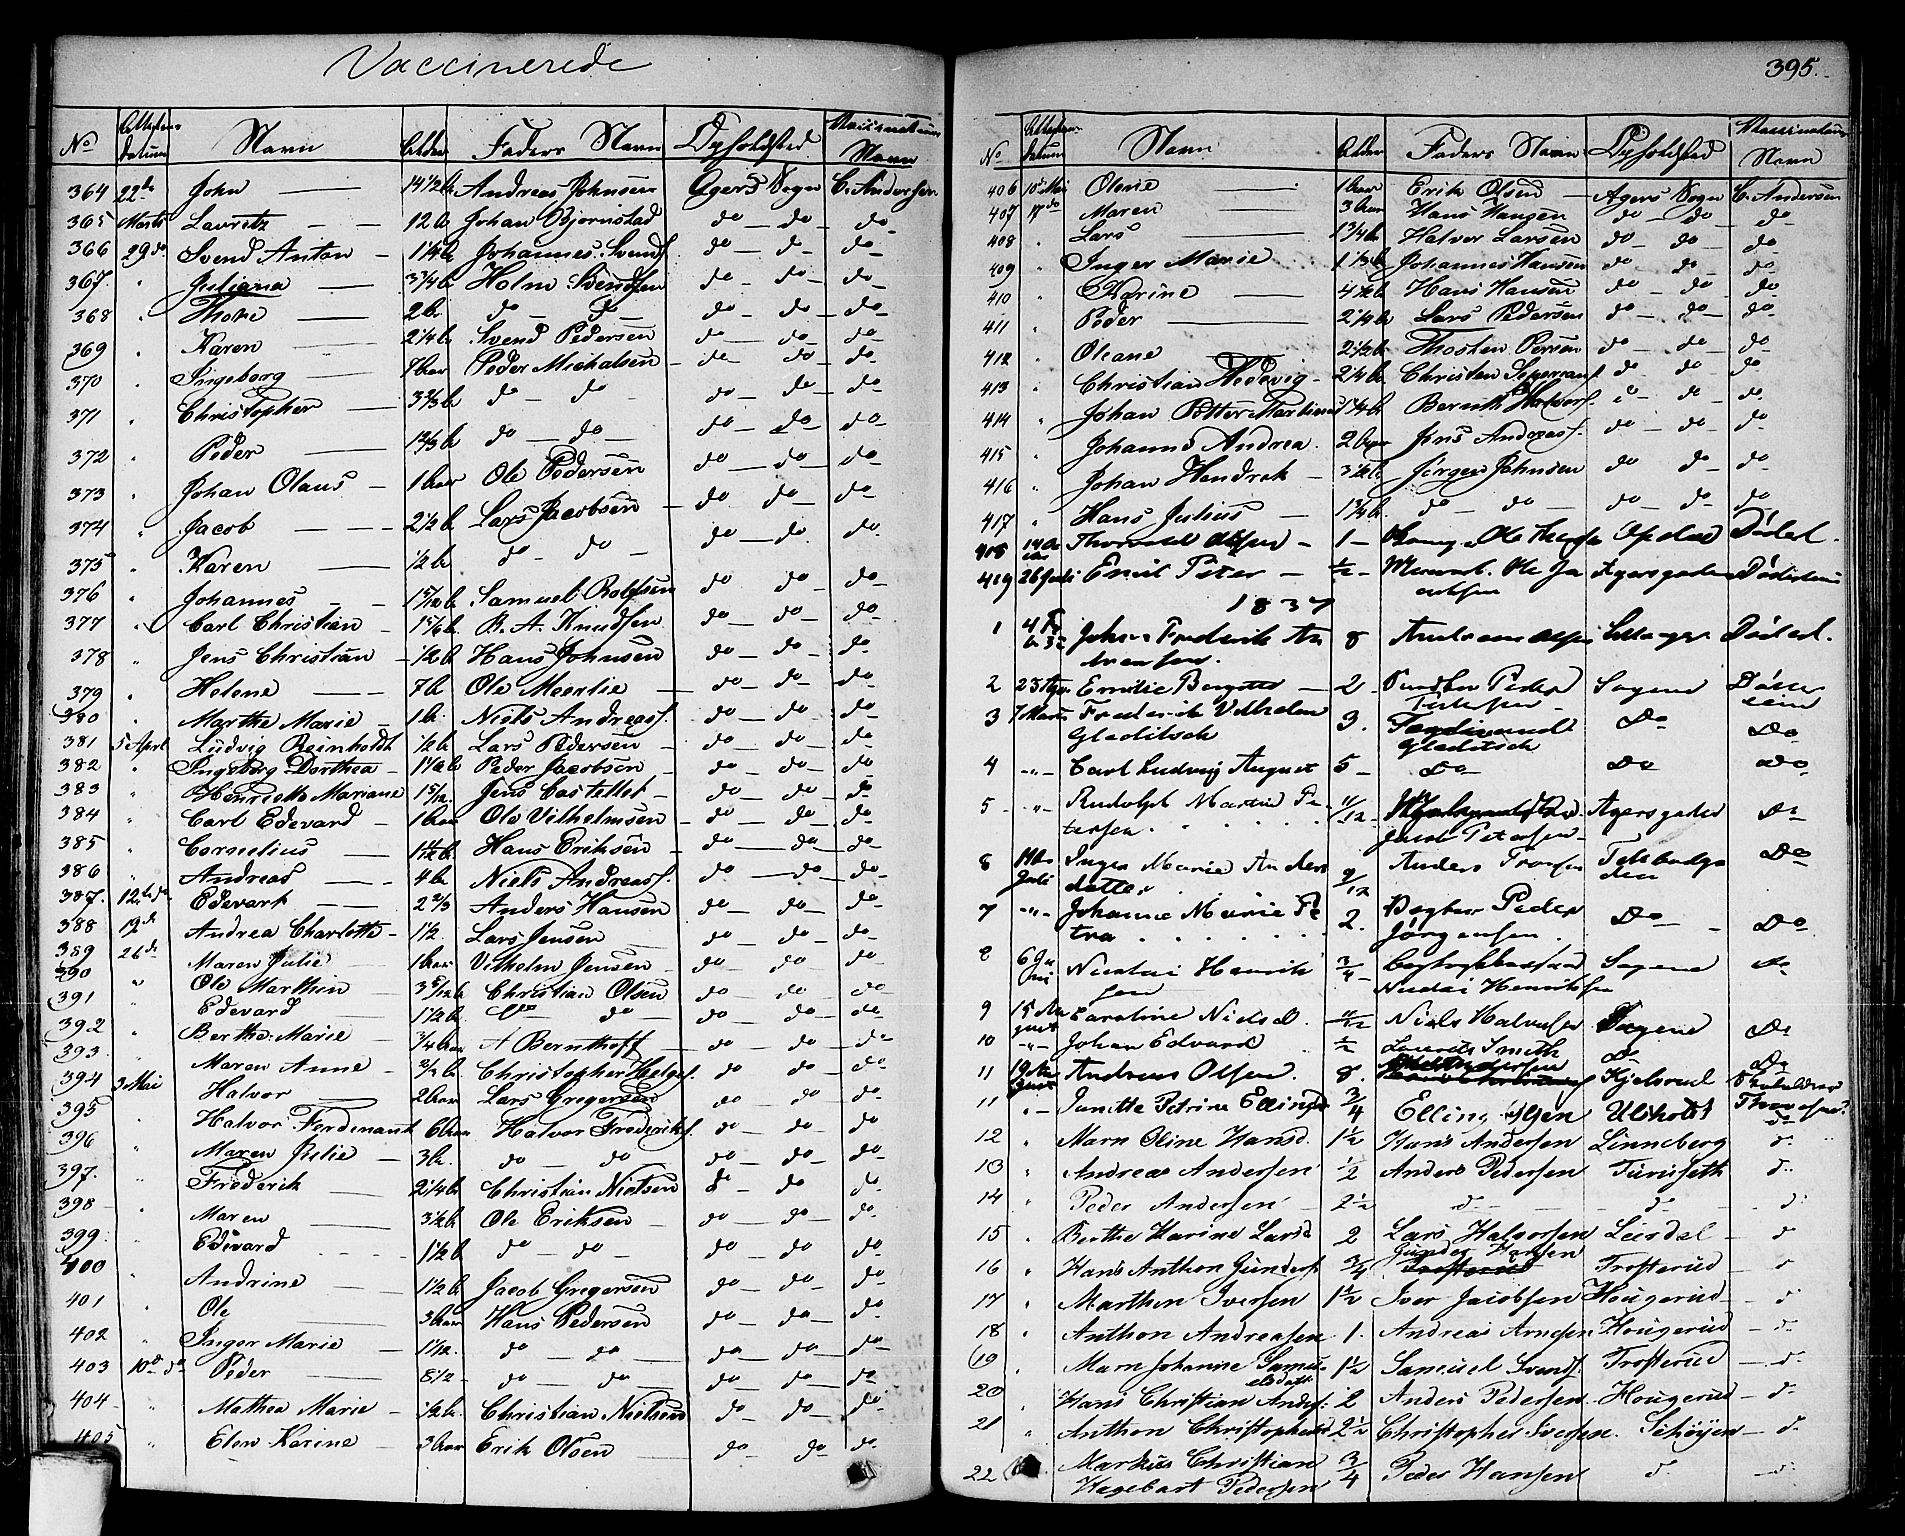 Vaccinerede
No Attestens Datum Navn Alder Faders Navn Opholdsted Vaccinateurs Navn
364 22de John 14 1/2 Andreas Johnsen Agers Sogn C. Andersen
365 Marts Lauritz 12 Johan Bjørnstad do do do
366 29de Svend Anton 1 1/4 Johannes Svends. do do do
367. " Juliana 3 3/4 Holm Svendsen do do do
368 " Thore 2 do do do do do
369 " Karen 2 1/4 Svend Pedersen do do do
370 " Ingeborg 7 aar Peder Michalsen do do do
371 " Christopher do do do do do
372 " Peder do do do do do
373 " Johan Olaus 1 aar Ole Pedersen do do do
374 " Jacob 2 1/2 Lars Jacobsen do do do
375 " Karen 1/2 do do do do do
376 " Johannes Samuel Rolfsen do do do
377 " Carl Christian 1 5/6 B. A. Knudsen do do do
378 " Jens Christian 1/2 Hans Johnsen do do do
379 " Helene 7 Ole Meerlie do do do
380 " Marthe Marie 1 Niels Andreas. do do do
381 5 April Ludvig Reinholdt 1/2 Lars Pedersen do do do
382 " Ingeborg Dorthea 1 1/2 Peder Jacobsen do do do
383 " Henriette Mariane 1 5/12 Jens Castellet do do do
384 " Carl Edevard 1 aar Ole Vilhelmsen do do do
385 " Cornelius Hans Eriksen do do do
386 " Andreas 4 Niels Andreas. do do do
387. 12te do Edevart 2 2/3 Anders Hansen do do do
388 19de Andrea Charlotte 1 1/2 Lars Jensen do do do
389 26de Maren Julie 1 aar Vilhelm Jensen do do do
390 " Ole Marthin 3 5/12 Christian Olsen do do do
391 " Edevard 1 1/2 do do do do do
392 " Berthe Marie 3/4 aar A Bernthoff do do do
393 " Maren Anne Christopher Helges. do do do
394 3 Mai Halvor 2 aar Lars Gregersen do do do
395 Halvor Ferdinant 6 aar Halvor Frederiks. do do do
396 " Maren Julie 3 do do do do do
397. " Frederik 2 1/4 Christian Nielsen do do do
398 " Maren 3 1/2 Ole Eriksen do do do
399 Edevard 1 1/2 do do do do do
400 " Andrine 1 1/2 Jacob Gregersen do do do
401 " Ole 3 aar Hans Pedersen do do do
402 " Inger Marie do do do do do
403 10de do Peder 8 1/2 do do do do do
404 " Mathea Marie 1/2 Christian Nielsen do do do
405 " Elen Karine 3 aar Erik Olsen do do do
395.
No Attestens Datum Navn Alder Faders Navn Opholdsted Vaccinateurs Navn
406 10de Mai Olavie 1 aar Erik Olsen Agers Sogn C. Andersen
407 17de Maren 3 aar Hans Hansen do do do
408 " Lars 1 3/4 Halvor Larsen do do do
409 " Inger Marie 1 1/3 Johannes Hansen do do do
410 " Karine 4 1/2 Hans Hansen do do do
411 " Peder 2 1/4 Lars Pedersen do do do
412 " Oleane 2 1/2 Thosten Persen do do do
413 " Christian Hedevig 2 1/4 Christen do do do
414 " Johan Potter Martinus 1 1/4 Bernth Halvors. do do do
415 " Johanne Andrea 2 aar Jens Andreas. do do do
416 " Johan Hendrek 3 1/2 Jørgen Johnsen do do do
417 " Hans Julius 1 3/4 do do do do do
418 Thorvald Olsen 1 Opslad Dødel.
419 26 Juli Emil Peter 1/2 Agersgaden
1837
1 Johan Frederik An
dreasen. 8 Andreas Olsen
2 Emilie Bergitte 2 Peder
Petersen Sagene
3 7 Marts Frederik Vilhelm
Gladitsch 3. Ferdinand
Gladitsch do do
4 " Carl Ludvig August 5 do do do
5 " Rudolph Martin Pe
tersen. 11/12 Jacob Petersen Agersgaden do
6 Juli Inger Marie Anders
datter 9/12 Anders do
7 " Johanne Marie Pe
tra 2. Peder
Jørgensen. do do
8 6 Nicolai Henrik
sen 3/4 Nicolai Henriksen Sagene do
9 15 August Caroline Nielsd. Niels Halvorsen Sagene do
10 " Johan Edvard 1/2 Lauritz Smith do do
11 19 August Andreas Olsen. 8. Kjelsrud
11 " Janitte Petrine Ellingsd 3/4 Elling Olsen Ulsholt
12 " Marn Oline Hansd. 1 1/2 Hans Andersen Linneberg d.
13 " Andreas Andersen 1/2 Anders Pedersen Furuseth d.
14 " Peder Andersen 2 1/2 d. d. d.
15 " Berthe Karine Larsd. 2 Lars Halvorsen Leirdal d
16 " Hans Anthon Gunders. 3/4 Gunder Hansen Trosterud
17 " Marthin Iversen 1 1/2 Iver Jacobsen Hougerud d.
18 " Anthon Andreasen 1. Andreas Arnesen Hougerud d.
19 " Marn Johanne Samu
elsdatt 1 1/2 Samuel Svends. Trosterud d.
20 " Hans Christian Anders. 2 Anders Pedersen Hougerud d.
21 " Anthon Christophers. 2 1/2 Christopher Iversen. Schøyen d.
22 Markus Christian
Hagebart Pedersen 3/4 Peder Hansen d. d.